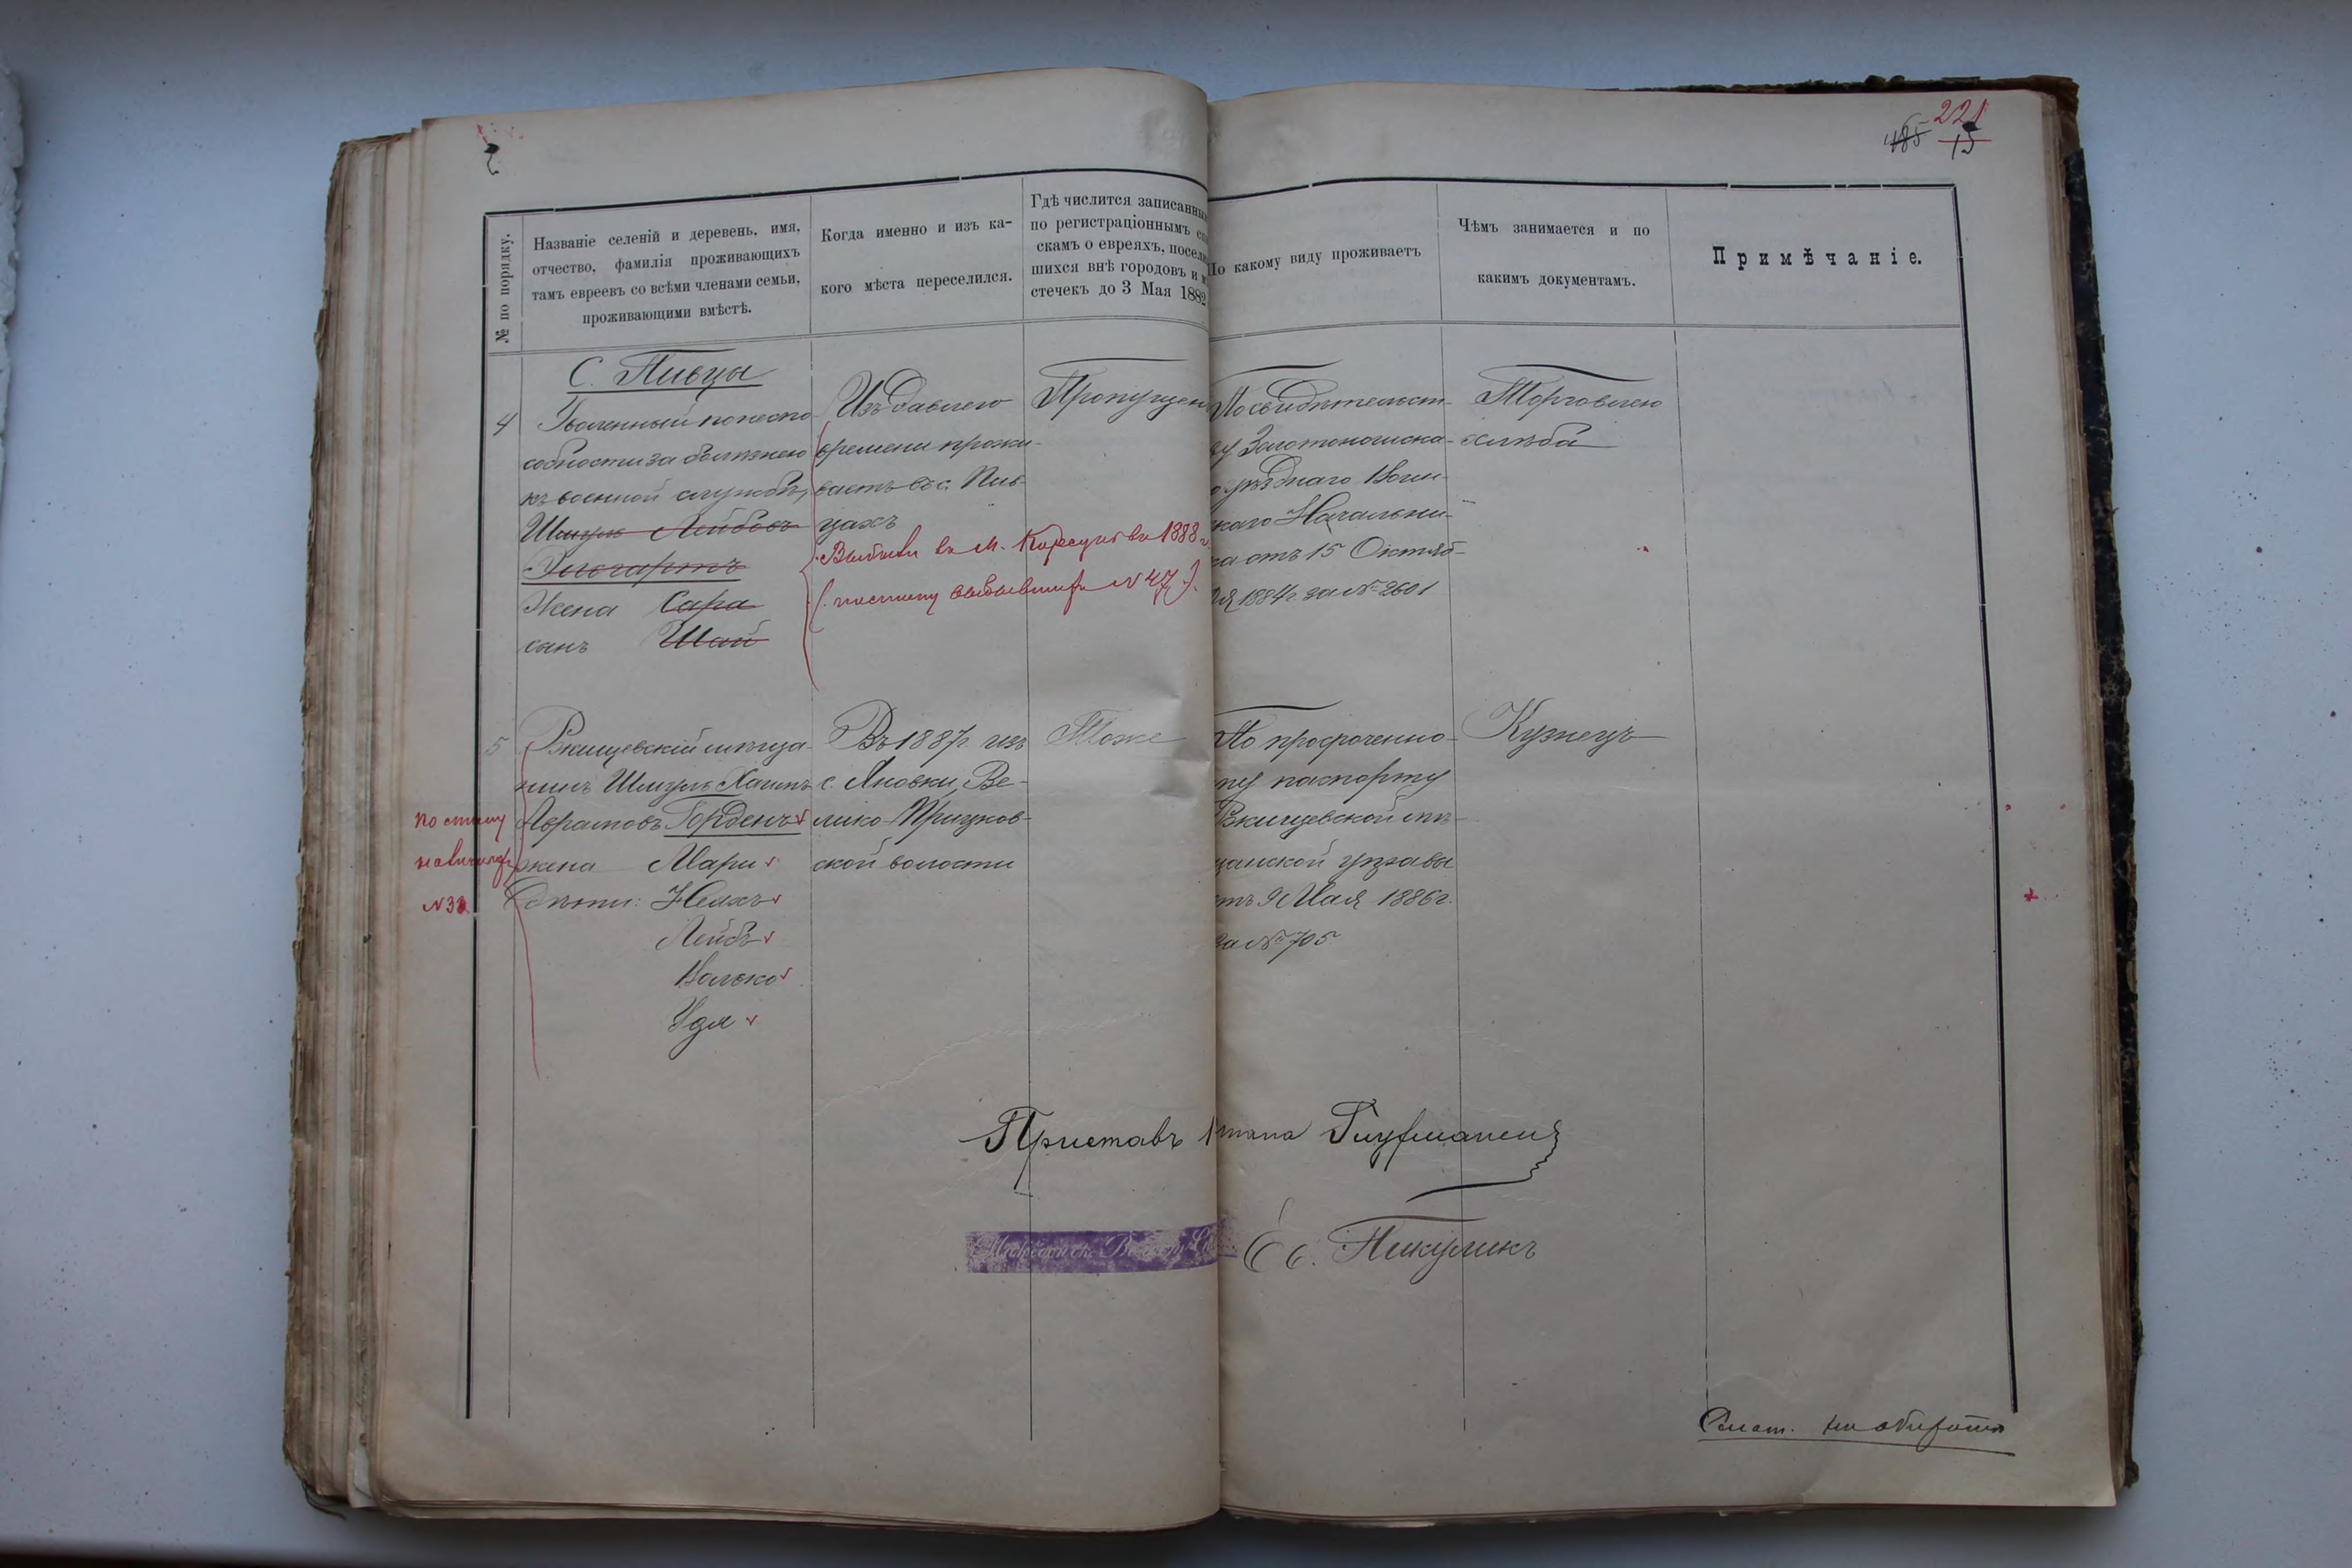 221
185 15
№ по порядку.
Названіе селеній и деревень, имя,
отчество, фамилія проживающихъ
тамъ евреевъ со всѣми членами семьи,
проживающими вмѣстѣ.
Когда именно и изъ ка-
кого мѣста переселился.
Гдѣ числится записанным
по регистраціоннымъ сп
скамъ о евреяхъ, посели
шихся внѣ городовъ и м
стечекъ до 3 Мая 1882
По какому виду проживаетъ
Чѣмъ занимается и по
какимъ документамъ.
Примѣчаніе.
С. Пивцы
4
Уволенный по неспо
собности за болѣзнею
къ военной службѣ,
Шмуль Лейбовъ
Жена Сара
сынъ Шай
Издавлего
времени прожи-
ваетъ въ с. Пив-
цахъ
Выбыли въ м. Корсунь въ 1888 г.
N 47).
Пропущен
По свидѣтельст-
ву Золотоношска-
о уѣзднаго Воин-
скаго Начальни-
ка отъ 15 Октяб-
ря 1884 г. за № 2601
Торговлею
хлѣба
5
Ржищевскій мѣща-
нинъ Шмуль Хаимъ
Аврамовъ Горденъ
жена Мари
дѣти: Нелхъ
Лейбъ
Волько
Удя
По списку
N 33
Въ 1887 г. изъ
с. Яновки, Ве-
лико-Прицков-
ской волости
Тоже
По просроченно-
му паспорту
Ржищевской мѣ-
щанской управы
отъ 9 Мая 1886 г.
за № 705
Кузнецъ
Приставъ 1 стана
Никулинъ
Смот. на оборотѣ